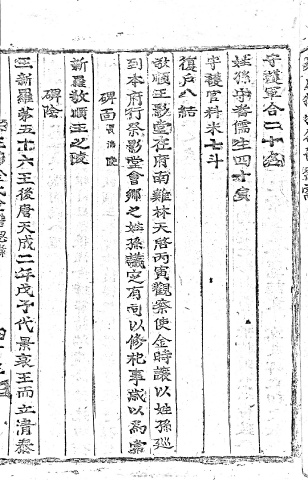 守護軍合二十名
姓孫守番儒生四十員
守護官料米七斗
復戶八結
敬順王影堂在府南雞林天啓丙寅觀察使金時讓以姓孫巡
到本府行祭影堂會鄉之姓孫議定有司以修祀事歲以爲常
碑面
新羅敬順王之陵
碑陰
王新羅第五十六王後唐天成二年戊子代景哀王而立清泰